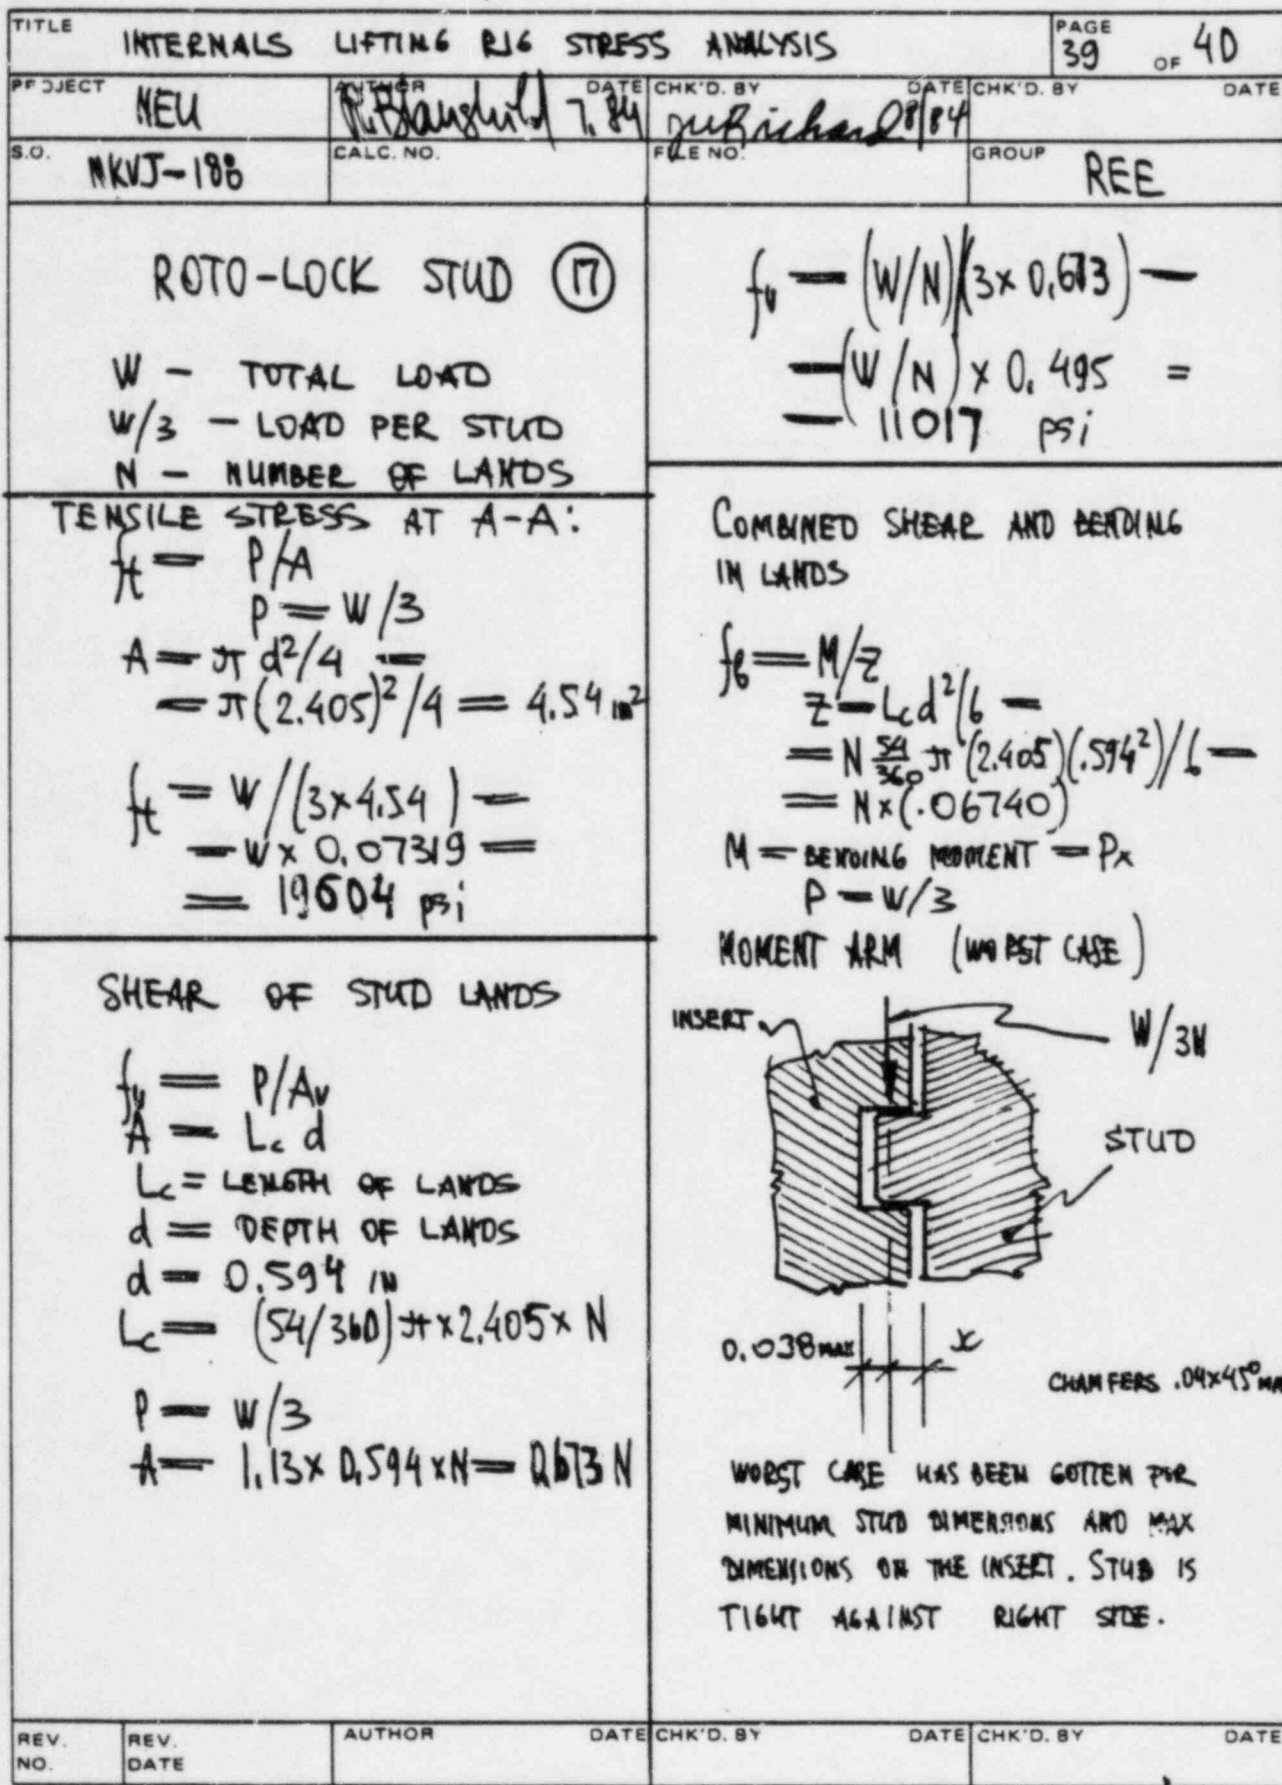 TITLE INTERNALS LIFTING RIG STRESS ANALYSIS
PAGE 39 OF 40
PROJECT NEU
AUTHOR DATE 7.84
CHK'D. BY DATE 8/84
CHK'D. BY DATE
S.O. NKVJ-188
CALC. NO.
FILE NO.
GROUP REE
ROTO-LOCK STUD 17
W - TOTAL LOAD
W/3 - LOAD PER STUD
N - NUMBER OF LANDS
TENSILE STRESS AT A-A:
ft = P/A
P = W/3
A = π d²/4 =
= π(2.405)²/4 = 4.54 in²
ft = W/(3×4.54) =
= W × 0.07319 =
= 19604 psi
SHEAR OF STUD LANDS
fv = P/Av
A = Lc d
Lc = LENGTH OF LANDS
d = DEPTH OF LANDS
d = 0.594 IN
Lc = (54/360)π×2.405×N
P = W/3
A = 1.13×0.594×N = 0.673 N
fv = (W/N)/(3×0.673) =
=(W/N)×0.495 =
= 11017 psi
COMBINED SHEAR AND BENDING
IN LANDS
fb = M/Z
Z = Lc d²/6 =
= N 54/360 π (2.405)(.594²)/6 =
= N×(.06740)
M = BENDING MOMENT = Px
P = W/3
MOMENT ARM (WORST CASE)
INSERT
W/3N
STUD
0.038 MAX
x
CHAMFERS .04×45° MA
WORST CASE HAS BEEN GOTTEN FOR
MINIMUM STUD DIMENSIONS AND MAX
DIMENSIONS ON THE INSERT. STUB IS
TIGHT AGAINST RIGHT SIDE.
REV. NO.
REV. DATE
AUTHOR DATE
CHK'D. BY DATE
CHK'D. BY DATE